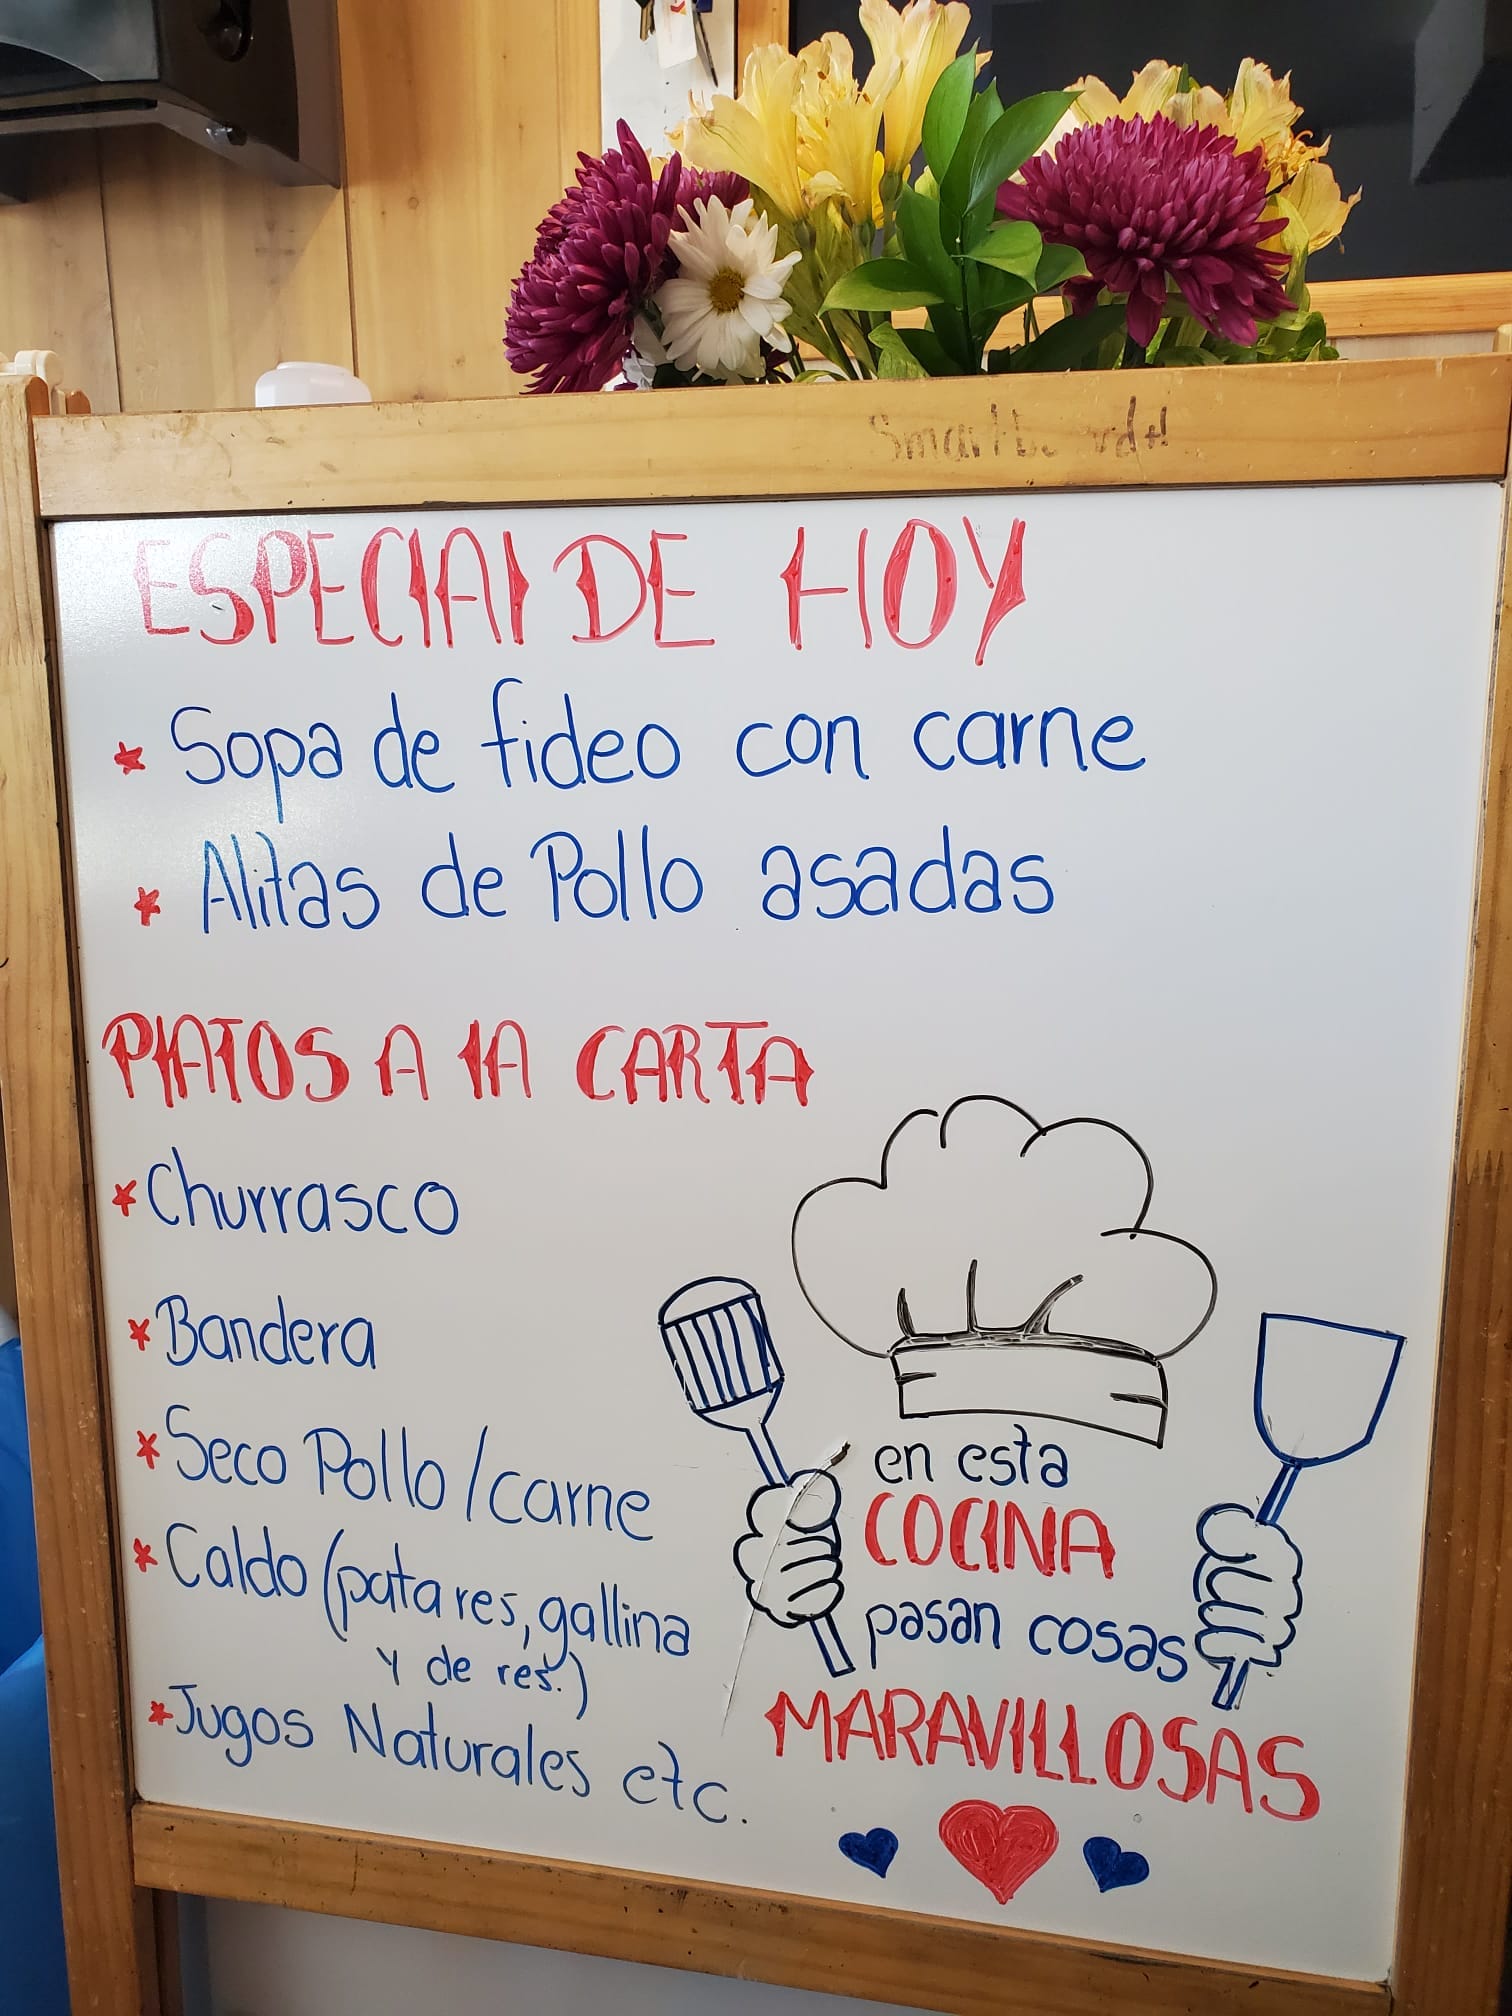 ESPECIAL DE HOY
* Sopa de fideo con carne
* Alitas de Pollo asadas
PLATOS A LA CARTA
* Churrasco
* Bandera
* Seco Pollo/carne
* Caldo (pata res, gallina
y de res.)
* Jugos Naturales etc.
en esta
COCINA
pasan cosas
MARAVILLOSAS